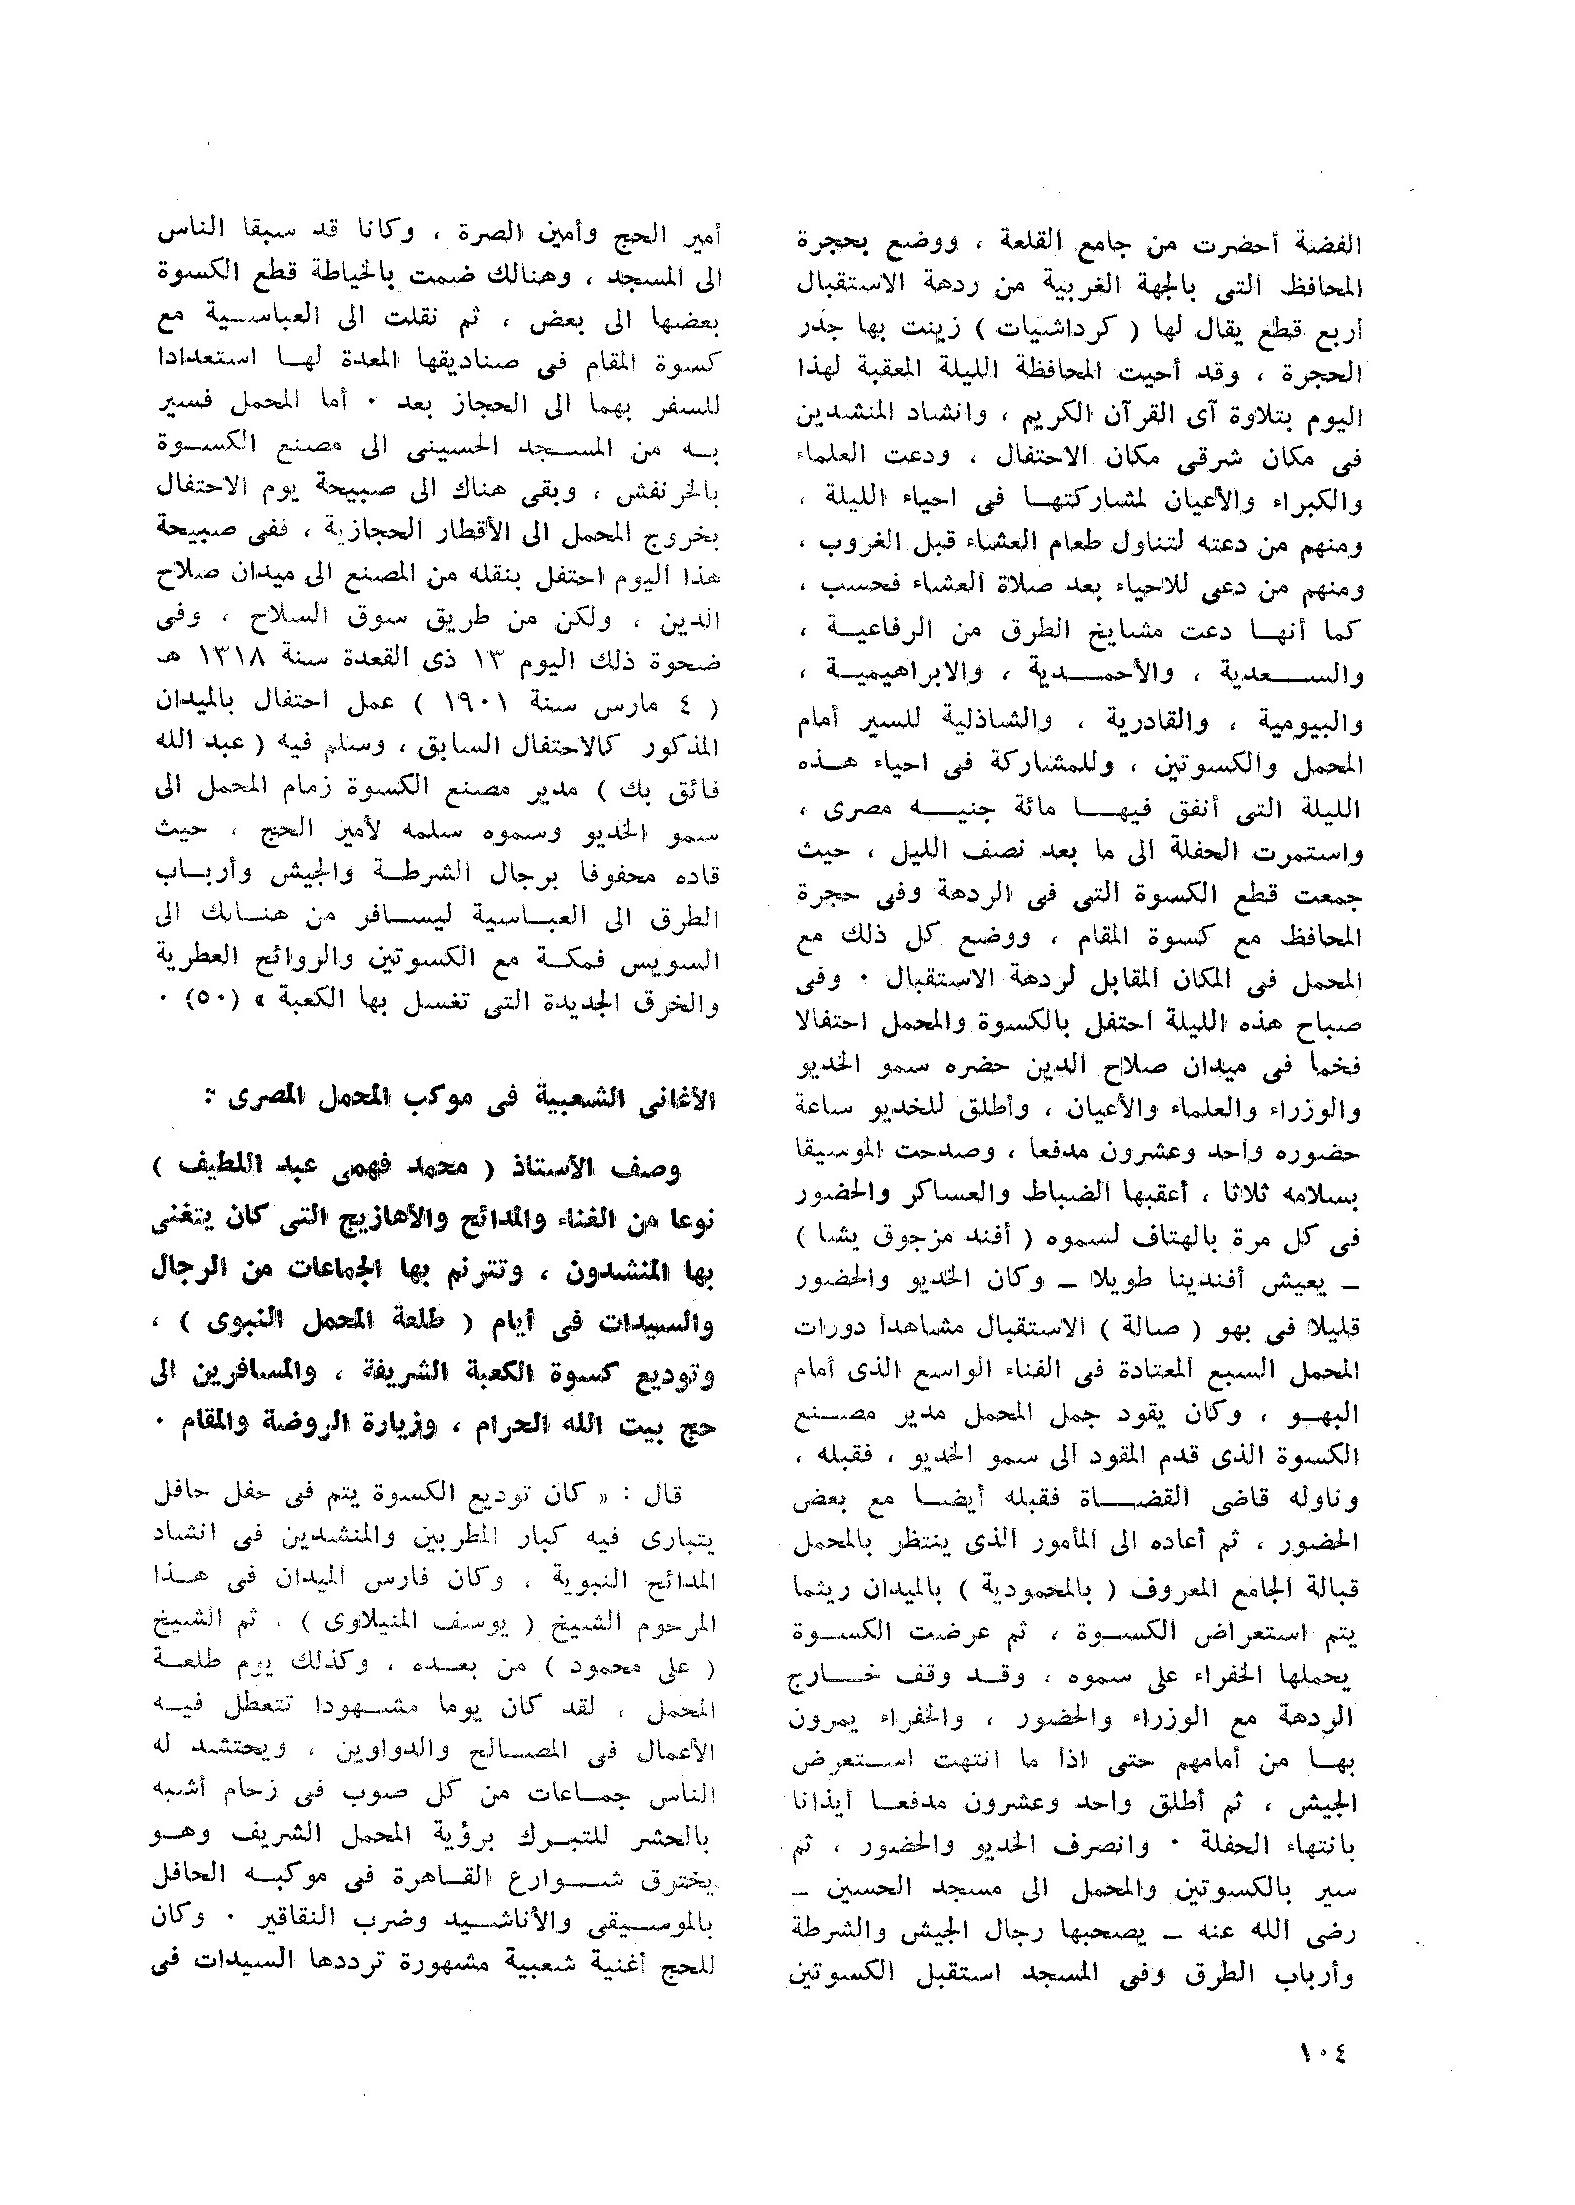 الفضة أحضرت من جامع القلعة ، ووضع بحجرة
المحافظ التى بالجهة الغربية من ردهة الاستقبال
أربع قطع يقال لها ( كرداشيات ) زينت بها جدر
الحجرة ، وقد أحيت المحافظة الليلة المعقبة لهذا
اليوم بتلاوة آى القرآن الكريم ، وانشاد المنشدين
فى مكان شرقى مكان الاحتفال ، ودعت العلماء
والكبراء والأعيان لمشاركتها فى احياء الليلة ،
ومنهم من دعته لتناول طعام العشاء قبل الغروب ،
ومنهم من دعى للاحياء بعد صلاة العشاء فحسب ،
كما أنها دعت مشايخ الطرق من الرفاعية ،
والسعدية ، والأحمدية ، والابراهيمية ،
والبيومية ، والقادرية ، والشاذلية للسير أمام
المحمل والكسوتين ، وللمشاركة فى احياء هذه
الليلة التى أنفق فيها مائة جنيه مصرى ،
واستمرت الحفلة الى ما بعد نصف الليل ، حيث
جمعت قطع الكسوة التى فى الردهة وفى حجرة
المحافظ مع كسوة المقام ، ووضع كل ذلك مع
المحمل فى المكان المقابل لردهة الاستقبال ٠ وفى
صباح هذه الليلة احتفل بالكسوة والمحمل احتفالا
فخما فى ميدان صلاح الدين حضره سمو الخديو
والوزراء والعلماء والأعيان ، وأطلق للخديو ساعة
حضوره واحد وعشرون مدفعا ، وصدحت الموسيقا
بسلامه ثلاثا ، أعقبها الضباط والعساكر والحضور
فى كل مرة بالهتاف لسموه ( أفند مزجوق يشا )
ــ يعيش أفندينا طويلا ــ وكان الخديو والحضور
قليلا فى بهو ( صالة ) الاستقبال مشاهدا دورات
المحمل السبع المعتادة فى الفناء الواسع الذى أمام
البهو ، وكان يقود جمل المحمل مدير مصنع
الكسوة الذى قدم المقود الى سمو الخديو ، فقبله ،
وناوله قاضى القضاة فقبله أيضا مع بعض
الحضور ، ثم أعاده الى المأمور الذى ينتظر بالمحمل
قبالة الجامع المعروف ( بالمحمودية ) بالميدان ريثما
يتم استعراض الكسوة ، ثم عرضت الكسوة
يحملها الخفراء على سموه ، وقد وقف خارج
الردهة مع الوزراء والحضور ، والخفراء يمرون
بها من أمامهم حتى اذا ما انتهت استعرض
الجيش ، ثم أطلق واحد وعشرون مدفعا أيذانا
بانتهاء الحفلة ٠ وانصرف الخديو والحضور ، ثم
سير بالكسوتين والمحمل الى مسجد الحسين ــ
رضى الله عنه ــ يصحبها رجال الجيش والشرطة
وأرباب الطرق وفى المسجد استقبل الكسوتين
أمير الحج وأمين الصرة ، وكانا قد سبقا الناس
الى المسجد ، وهنالك ضمت بالخياطة قطع الكسوة
بعضها الى بعض ، ثم نقلت الى العباسية مع
كسوة المقام فى صناديقها المعدة لها استعدادا
للسفر بهما الى الحجاز بعد ٠ أما المحمل فسير
به من المسجد الحسينى الى مصنع الكسوة
بالخرنفش ، وبقى هناك الى صبيحة يوم الاحتفال
بخروج المحمل الى الأقطار الحجازية ، ففى صبيحة
هذا اليوم احتفل بنقله من المصنع الى ميدان صلاح
الدين ، ولكن من طريق سوق السلاح ، وفى
ضحوة ذلك اليوم ١٣ ذى القعدة سنة ١٣١٨ هـ
( ٤ مارس سنة ١٩٠١ ) عمل احتفال بالميدان
المذكور كالاحتفال السابق ، وسلم فيه ( عبد الله
فائق بك ) مدير مصنع الكسوة زمام المحمل الى
سمو الخديو وسموه سلمه لأمير الحج ، حيث
قاده محفوفا برجال الشرطة والجيش وأرباب
الطرق الى العباسية ليسافر من هنالك الى
السويس فمكة مع الكسوتين والروائح العطرية
والخرق الجديدة التى تغسل بها الكعبة » (٥٠) ٠
الأغانى الشعبية فى موكب المحمل المصرى :
وصف الأستاذ ( محمد فهمى عبد اللطيف )
نوعا من الغناء والمدائح والأهازيج التى كان يتغنى
بها المنشدون ، وتترنم بها الجماعات من الرجال
والسيدات فى أيام ( طلعة المحمل النبوى ) ،
وتوديع كسوة الكعبة الشريفة ، والمسافرين الى
حج بيت الله الحرام ، وزيارة الروضة والمقام ٠
قال : « كان توديع الكسوة يتم فى حفل حافل
يتبارى فيه كبار المطربين والمنشدين فى انشاد
المدائح النبوية ، وكان فارس الميدان فى هذا
المرحوم الشيخ ( يوسف المنيلاوى ) ، ثم الشيخ
( على محمود ) من بعده ، وكذلك يوم طلعة
المحمل ، لقد كان يوما مشهودا تتعطل فيه
الأعمال فى المصالح والدواوين ، ويحتشد له
الناس جماعات من كل صوب فى زحام أشبه
بالحشر للتبرك برؤية المحمل الشريف وهو
يخترق شوارع القاهرة فى موكبه الحافل
بالموسيقى والأناشيد وضرب النقاقير ٠ وكان
للحج أغنية شعبية مشهورة ترددها السيدات فى
١٠٤